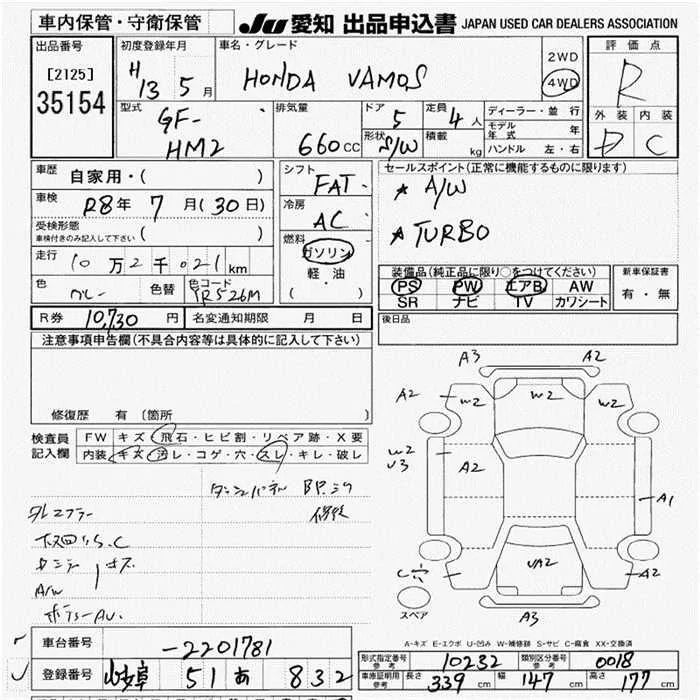 車内保管・守衛保管
JU 愛知 出品申込書 JAPAN USED CAR DEALERS ASSOCIATION
出品番号
[2125]
35154
初度登録年月
H13 5 月
車名・グレード
HONDA VAMOS
2WD
4WD
評価点
R
外装 内装
D C
型式
GF-
HM2
排気量
660 CC
ドア
5
定員
4 人
形状
S/W
積載
kg
ディーラー・並行
モデル年式 年
ハンドル 左・右
車歴
自家用・( )
車検
R8年 7 月(30日)
受検形態
車検付きのみ記入して下さい ( )
走行
10 万 2 千 021 km
色
グレー
色替
色コード
YR526M
シフト
FAT
冷房
AC
燃料
ガソリン
軽・油
( )
セールスポイント(正常に機能するものに限ります)
★ A/W
★ TURBO
装備品(純正品に限り○をつけてください)
PS PW エアB AW
SR ナビ TV カワシート
新車保証書
有・無
R券 10,730 円
名変通知期限 月 日
後日品
注意事項申告欄(不具合内容等は具体的に記入して下さい)
修復歴 有 〔箇所 〕
検査員
記入欄
FW キズ・飛石・ヒビ割・リペア跡・X要
内装 キズ・汚レ・コゲ・穴・スレ・キレ・破レ
A/W
A3 A2
A2 W2 W2 W2
W2
U3
A2
A1
C穴
UA2
A2
A3
スペア
A-キズ E-エクボ U-凹み W-補修跡 S-サビ C-腐食 XX-交換済
車台番号
-2201781
登録番号
岐阜 51 あ 832
形式指定番号
参考
10232
類別区分番号
参考
0018
車庫証明用
参考
長さ 339 cm 幅 147 cm 高さ 177 cm